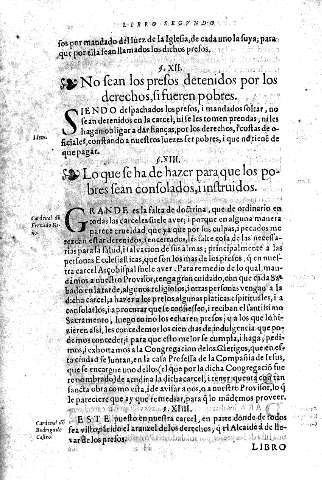 LIBRO SEGVNDO
sos por mandado del Iuez de la Iglesia, de cada uno la suya, para
que por ella sean llamados los dichos presos.
§. XII.
No sean los presos detenidos por los
derechos, si fueren pobres.
SIENDO despachados los presos, i mandados soltar, no
sean detenidos en la carcel, ni se les tomen prendas, ni les
Idem.
hagan obligar a dar fianças, por los derechos, i costas de o-
ficiales, constando a nuestros juezes ser pobres, i que no tienẽ de
que pagar.
§. XIII.
Lo que se ha de hazer para que los po-
bres sean consolados, i instruidos.
GRANDE es la falta de doctrina, que de ordinario en
Cardenal dõ
todas las carceles suele aver; i porque en alguna manera
Fernando Ni-
parece crueldad que ya que por sus culpas, i pecados me
ño.
rezcan estar detenidos, i encerrados, les falte cosa de las necessa-
rias para la salud, i salvacion de sus almas; principalmente a las
personas Ecclesiasticas, que son los mas de los presos, q̃ en nues-
tra carcel Arçobispal suele aver. Para remedio de lo qual, man-
damos a nuestro Provisor, tenga gran cuidado, con que cada Sa-
bado en la tarde, algunos religiosos, i otras personas vengan a la
dicha carcel, a hazer a los presos algunas platicas espirituales, i a
consolarlos, i a procurar que se confiessen, i reciban el santissimo
Sacramento, luego como los echaren presos; i a los que lo hi-
zieren assi, les concedemos los cien dias de indulgencia que po-
demos conceder; i para que esto mejor se cumpla, i haga, pedi-
mos, i exhortamos a la Congregacion de los Clerigos, que en es-
ta ciudad se juntan, en la casa Professa de la Compañia de Iesus,
que se encargue uno dellos (el que por la dicha Congregacion fue
re nombrado) de andar en la dicha carcel, i tener quenta con tan
sancta obra como esta, i de avisar a nos, o a nuestro Provisor, lo q̃
le pareciere que ay que remediar, para q̃ lo mãdemos proveer.
§. XIIII.
Cardenal dõ
Rodrigo de
Castro.
ESTE puesto en nuestra carcel, en parte donde de todos
sea visto publico el aranzel de los derechos, q̃ el Alcaide a de lle-
var de los presos.
LIBRO